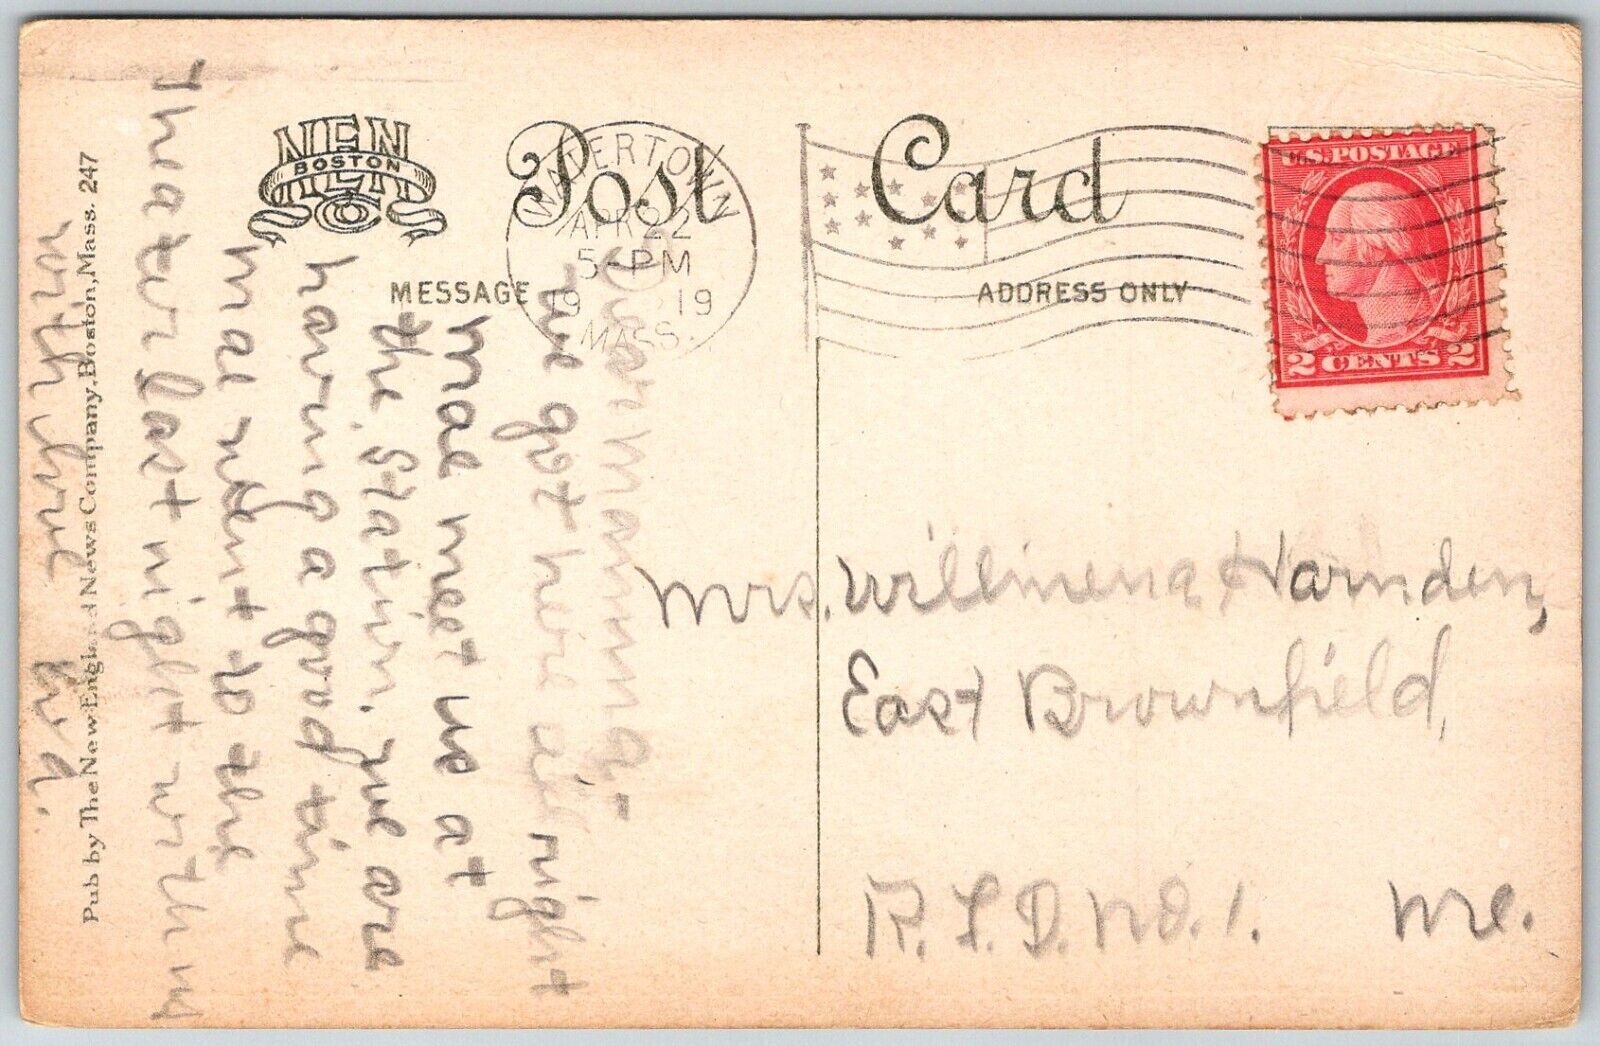 NEN
BOSTON
NEN
Co
Post Card
WATERTOWN
APR 22
5-PM
19 19
MASS.
MESSAGE
ADDRESS ONLY
U.S. POSTAGE
2 CENTS 2
Pub by The New England News Company, Boston, Mass. 247
Dear Mamma-
we got here all night
Mae met us at
the Station. We are
having a good time
Mae went to the
Theater last night
with
Mrs. Willmena Harnden,
East Brownfield,
R.F.D. No. 1. Me.